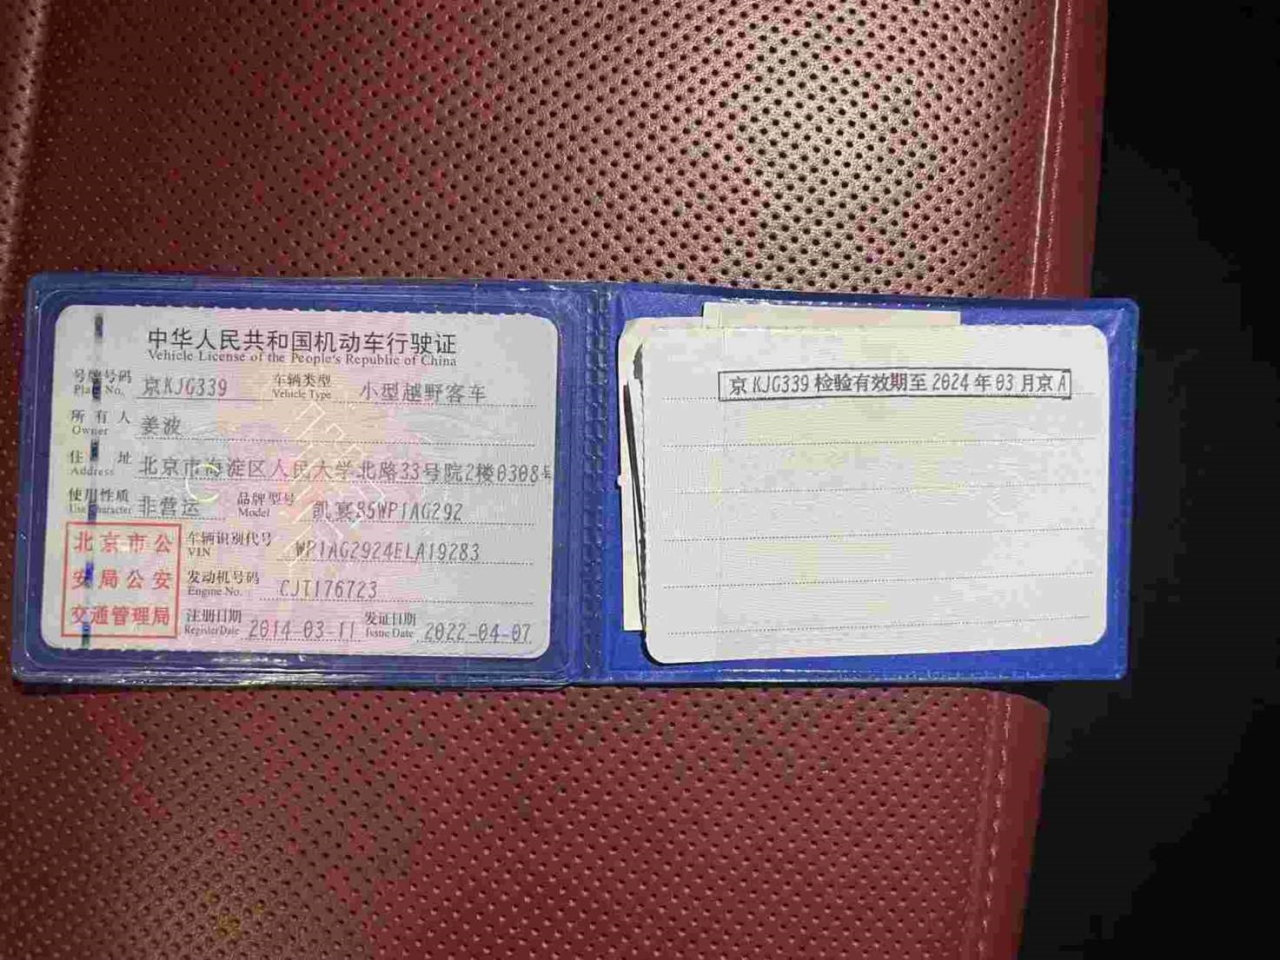 中华人民共和国机动车行驶证
Vehicle License of the People's Republic of China
号牌号码 京KJG339 车辆类型 小型越野客车
Plate No. Vehicle Type
所有人 姜波
Owner
住址 北京市海淀区人民大学北路33号院2楼0308号
Address
使用性质 非营运 品牌型号 凯宴85WP1AG292
Use Character Model
北京市公安局公安交通管理局
车辆识别代号 WP1AG2924ELA19283
VIN
发动机号码 CJT176723
Engine No.
注册日期 2014-03-11 发证日期 2022-04-07
Register Date Issue Date
京KJG339检验有效期至2024年03月京A